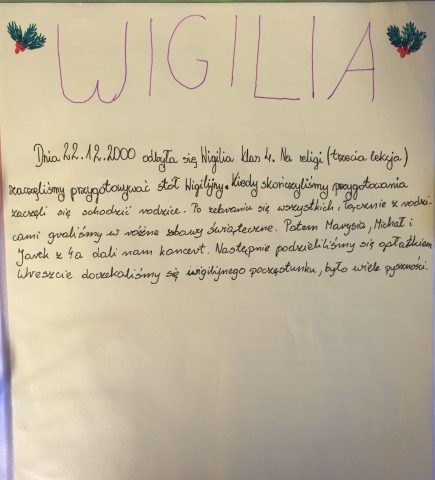 WIGILIA
Dnia 22.12.2000 odbyła się Wigilia klas 4. Na religi (trzecia lekcja)
zaczęliśmy przygotowywać stół Wigilijny. Kiedy skończyliśmy przygotowania
zaczęli się schodzić rodzice. Po zebraniu się wszystkich, łącznie z rodzi-
cami graliśmy w różne zabawy świąteczne. Potem Marysia, Michał i
Jarek z 4a dali nam koncert. Następnie podzieliliśmy się opłatkiem
Wreszcie doczekaliśmy się wigilijnego poczęstunku, było wiele pyszności.